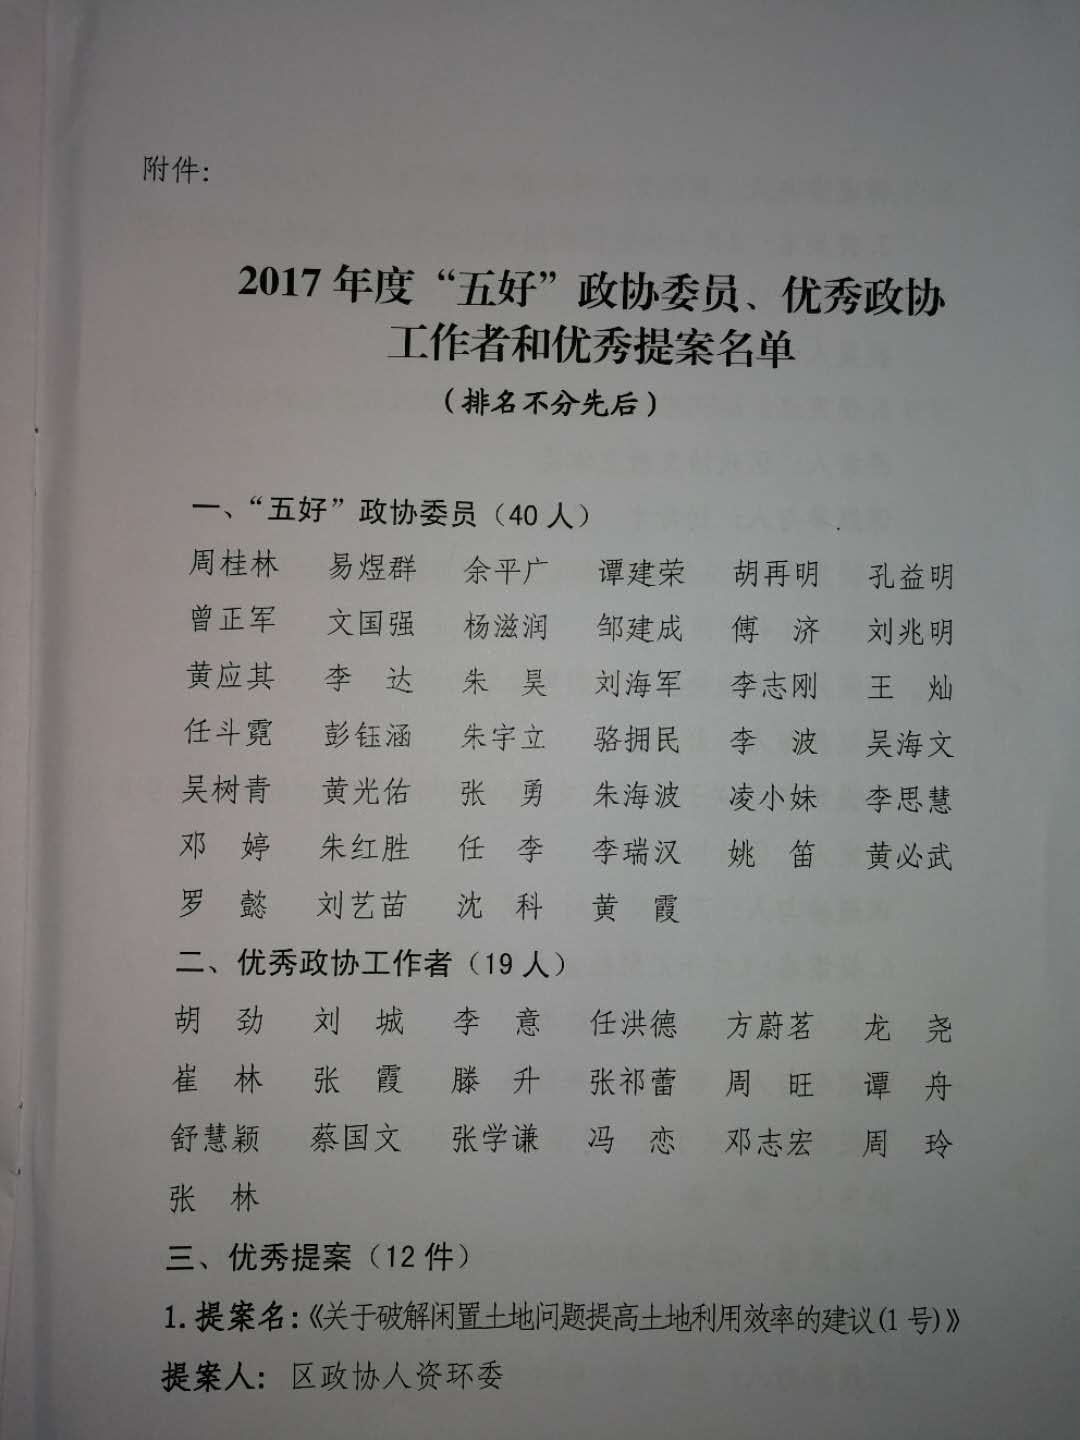 附件:
2017 年度“五好”政协委员、优秀政协
工作者和优秀提案名单
(排名不分先后)
一、“五好”政协委员(40 人)
周桂林 易煜群 余平广 谭建荣 胡再明 孔益明
曾正军 文国强 杨滋润 邹建成 傅 济 刘兆明
黄应其 李 达 朱 昊 刘海军 李志刚 王 灿
任斗霓 彭钰涵 朱宇立 骆拥民 李 波 吴海文
吴树青 黄光佑 张 勇 朱海波 凌小妹 李思慧
邓 婷 朱红胜 任 李 李瑞汉 姚 笛 黄必武
罗 懿 刘艺苗 沈 科 黄 霞
二、优秀政协工作者(19 人)
胡 劲 刘 城 李 意 任洪德 方蔚茗 龙 尧
崔 林 张 霞 滕 升 张祁蕾 周 旺 谭 舟
舒慧颖 蔡国文 张学谦 冯 恋 邓志宏 周 玲
张 林
三、优秀提案(12 件)
1. 提案名:《关于破解闲置土地问题提高土地利用效率的建议(1 号)》
提案人: 区政协人资环委